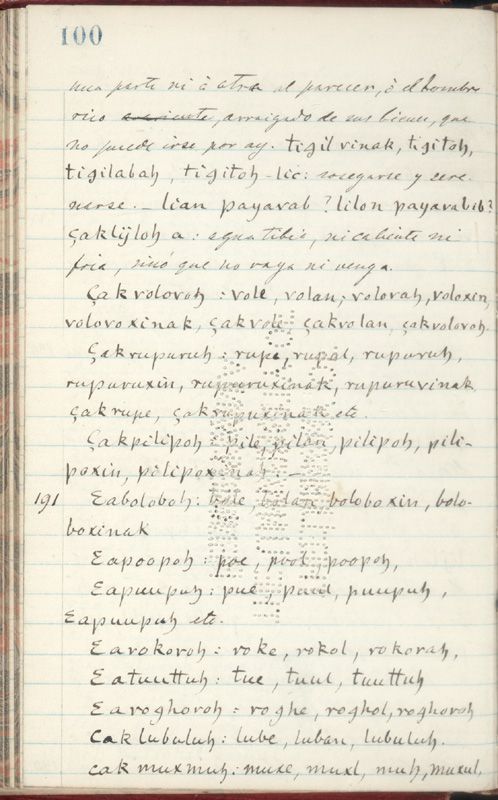 100
una parte ni á otra al parecer, ó el hombre
rico ~~avariento~~, arraigado de sus bienes, que
no puede irse por ay. tigilvinak, tigitoh,
tigilabah, tigitoh-lic: sosegarse y sere
narse. - lian payavab? lilon payavabib?
çaklijloh a: agua tibia, ni caliente ni
fria, sinó que no vaya ni venga.
Çakvolovoh: vole, volan; volovah, voloxin,
volovoxinak, çakvole çakvolan, çakvolovoh.
Çakrupuruh: rupe, rupal, rupuruh,
rupuruxin, rupuruxinak, rupuruvinak
çakrupe, çakrupuxinak etc.
Çakpilipoh: pile, pilan, pilipoh, pili-
poxin, pilipoxinah. -
191 Ɛaboloboh: bole, bolan, boloboxin, bolo-
boxinak
Ɛapoopoh: poe, pool, poopoh,
Ɛapuupuh: pue, puul, puupuh,
Ɛapuupuh etc.
Ɛarokoroh: roke, rokol, rokorah,
Ɛatuuttuh: tue, tuul, tuuttuh
Ɛaroghoroh: roghe, roghol, roghoroh
Cak lubuluh: lube, luban, lubuluh.
cak muxmuh: muxe, muxl, muh, muxul,